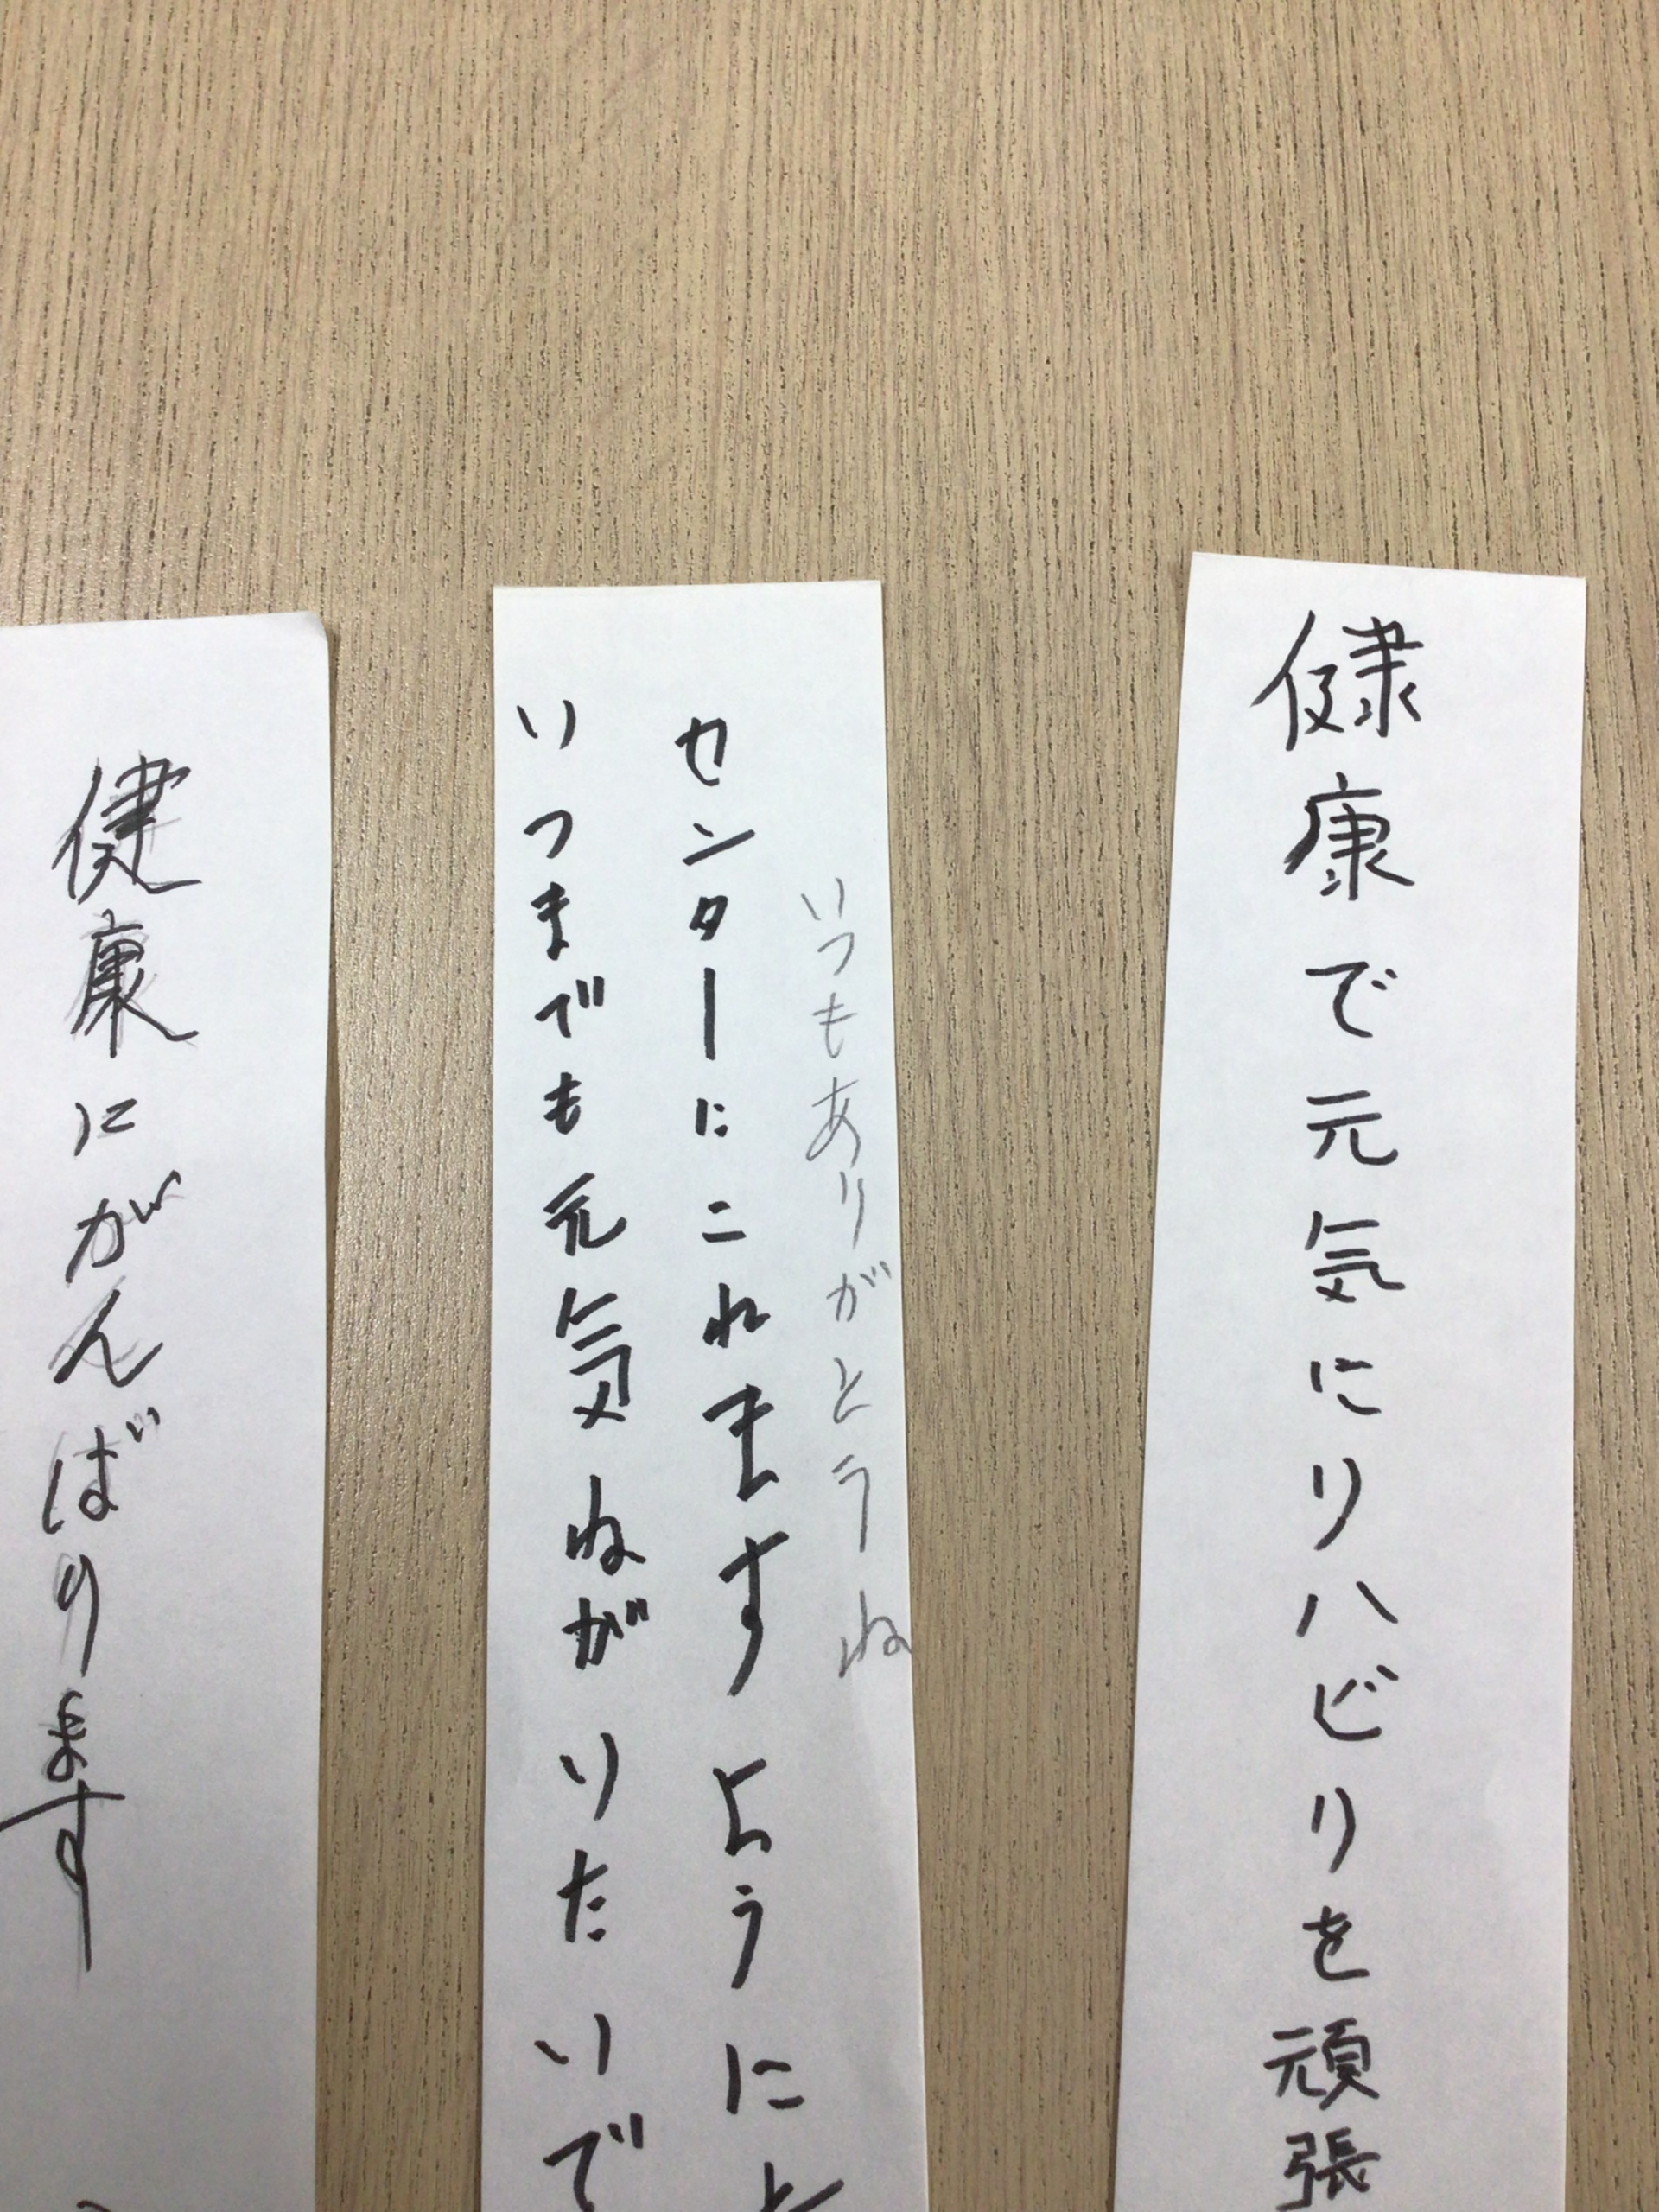 健康で元気にリハビリを頑張
いつもありがとうね
センターにこれますようにと
いつまでも元気ねがりたいで
健康にがんばります